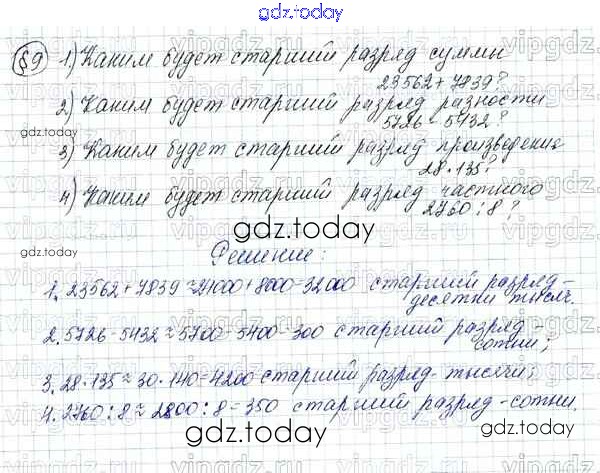 gdz.today
§9 1) Каким будет старший разряд суммы
23562 + 7839?
2) Каким будет старший разряд разности
5726 - 5432?
gdz.today
3) Каким будет старший разряд произведения
28·135?
4) Каким будет старший разряд частного
2760 : 8?
gdz.today
Решение:
1. 23562 + 7839 ≈ 24000 + 8000 = 32000 старший разряд -
десятки тысяч.
2. 5726 - 5432 ≈ 5700 - 5400 = 300 старший разряд -
сотни;
3. 28·135 ≈ 30·140 = 4200 старший разряд - тысячи;
4. 2760 : 8 ≈ 2800 : 8 = 350 старший разряд - сотни.
gdz.today
gdz.today